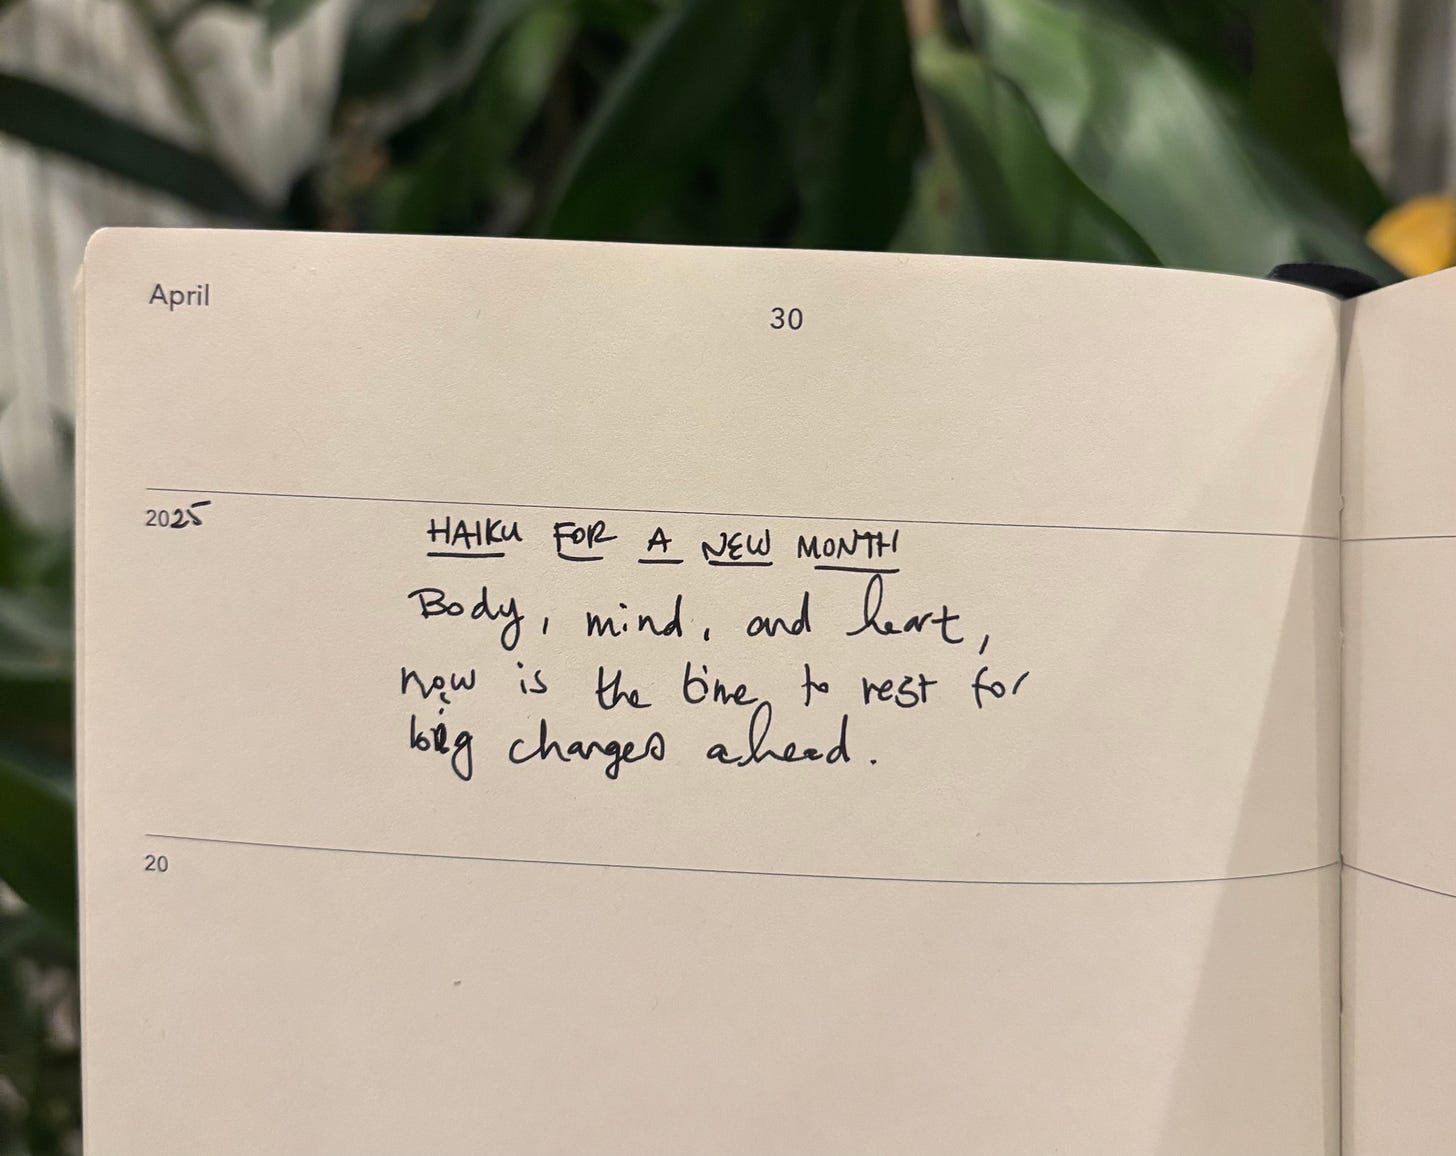 April
30
2025
HAIKU FOR A NEW MONTH
Body, mind, and heart,
now is the time to rest for
big changes ahead.
20